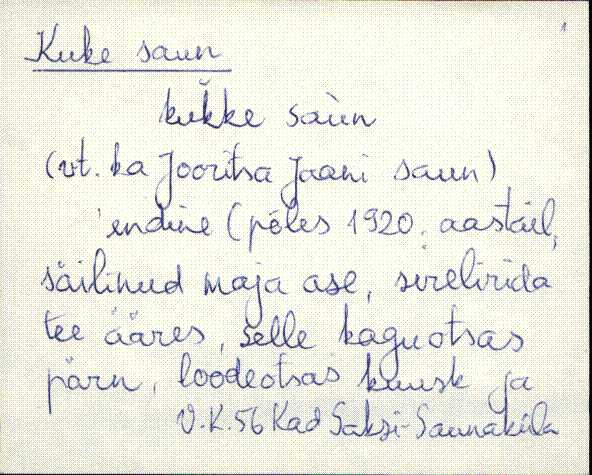 1
Kuke saun
kukke saùn
(vt. ka Jooritsa Jaani saun)
endine (põles 1920. aastail,
säilinud maja ase, sirelirida
tee ääres, selle kaguotsas
pärn, loodeotsas kuusk ja
V.K.56 Kad Saksi-Saunaküla